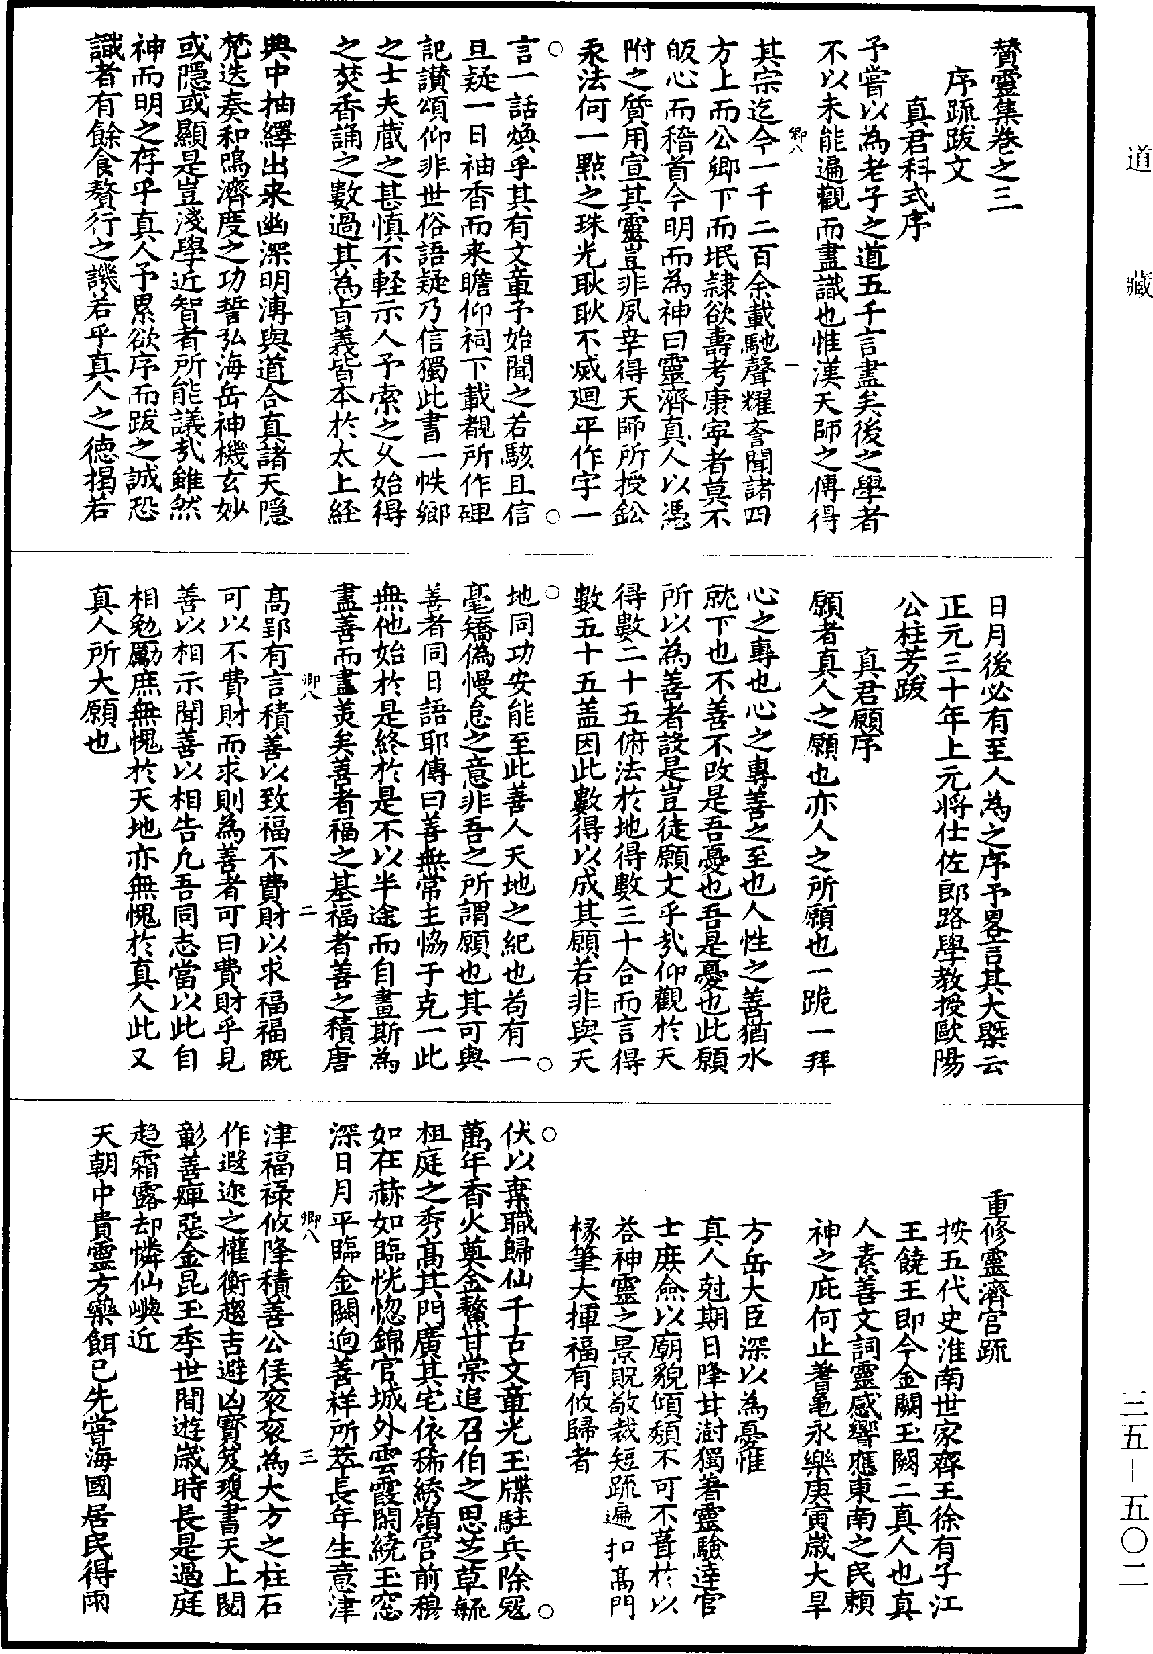 道藏
三五-五〇二
贊靈集卷之三
序疏跋文
真君科式序
予嘗以為老子之道五千言盡矣後之學者
不以未能遍觀而盡識也惟漢天師之傳得
其宗迄今一千二百余載馳聲耀譽聞諸四
卿八
一
方上而公卿下而垊隸欲壽考康寧者莫不
皈心而稽首今明而為神曰靈濟真人以憑
附之質用宣其靈豈非夙幸得天師所授鈆
汞法何一點之珠光耿耿不烕迴平作字一
言一話煥乎其有文章予始聞之若駭且信
且疑一日袖香而来瞻仰祠下載覩所作碑
記讃頌仰非世俗語疑乃信獨此書一帙鄉
之士夫蔵之甚慎不輕示人予索之乆始得
之焚香誦之數過其為旨義皆本於太上經
典中抽繹出来幽深明漙與道合真諸天隱
梵迭奏和鳴濟度之功誓弘海岳神機玄妙
或隱或顯是豈淺學近智者所能議㢤雖然
神而明之存乎真人予累欲序而跋之誠恐
識者有餘食贅行之譏若乎真人之德揭若
日月後必有至人為之序予畧言其大槩云
正元三十年上元將仕佐郎路學教授歐陽
公柱芳跋
真君願序
願者真人之願也亦人之所願也一跪一拜
心之專也心之專善之至也人性之善猶水
就下也不善不改是吾憂也吾是憂也此願
所以為善者設是豈徒願文乎㢤仰觀於天
得數二十五俯法於地得數三十合而言得
數五十五盖因此數得以成其願若非與天
地同功安能至此善人天地之紀也茍有一
毫矯偽慢怠之意非吾之所謂願也其可與
善者同日語耶傳曰善無常主協于克一此
無他始於是終於是不以半途而自畫斯為
盡善而盡羙矣善者福之基福者善之積唐
卿八
二
髙郢有言積善以致福不費財以求福福既
可以不費財而求則為善者可曰費財乎見
善以相示聞善以相告凢吾同志當以此自
相勉勵庶無愧於天地亦無愧於真人此又
真人所大願也
重修靈濟宫疏
按五代史淮南世家齊王徐有子江
王饒王即今金闕玉闕二真人也真
人素善文詞靈感響應東南之民賴
神之庇何止蓍龜永樂庚寅歳大旱
方岳大臣深以為憂惟
真人尅期日降甘澍獨著靈驗逹官
士庻僉以廟貌傾頽不可不葺於以
荅神靈之景貺敬裁短疏遍扣髙門
椽筆大揮福有攸歸者
伏以棄職歸仙千古文章光玉牒駐兵除宼
萬年香火奠金鰲甘棠追召伯之思芝草毓
柤庭之秀髙其門廣其宅依稀綉嶺宫前穆
如在赫如臨恍惚錦官城外雲霞閑繞玉窓
深日月平臨金闕逈善祥所萃長年生意津
卿八
三
津福禄攸降積善公侯衮衮為大方之柱石
作遐迩之權衡趨吉避凶寳笈瓊書天上閲
彰善癉惡金昆玉季世間遊歳時長是過庭
趋霜露却憐仙嶼近
天朝中貴靈方藥餌已先嘗海國居民得雨